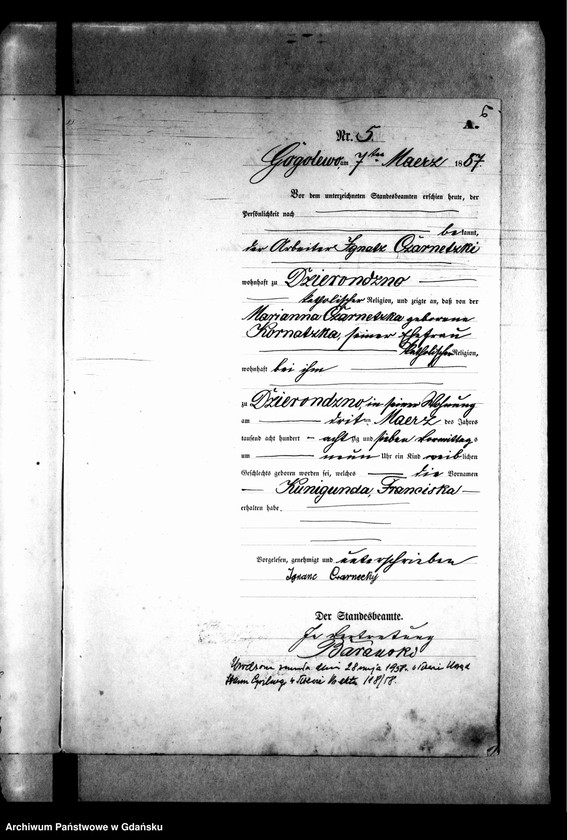 5
A.
Nr. 5.
Gogolewo, am 7ten Maerz 1887.
Vor dem unterzeichneten Standesbeamten erschien heute, der
Persönlichkeit nach
bekannt,
der Arbeiter Ignatz Czarnetzki
wohnhaft zu Dzierondzno
katholischer Religion, und zeigte an, daß von der
Marianna Czarnetzka geborene
Kornatzka, seiner Ehefrau
katholischer Religion,
wohnhaft bei ihm
zu Dzierondzno, in seiner Wohnung
am dritten Maerz des Jahres
tausend acht hundert acht zig und sieben Vormittags
um neun Uhr ein Kind weiblichen
Geschlechts geboren worden sei, welches die Vornamen
Kunigunda, Franciska
erhalten habe.
Vorgelesen, genehmigt und unterschrieben
Ignanc Czarnecky
Der Standesbeamte.
In Vertretung
Baranoki
dnia 28 maja 1958.
Archiwum Państwowe w Gdańsku